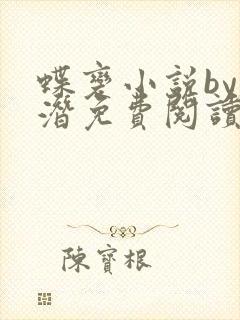 蝶裹小说by
潛免費閱讀
陳寶根